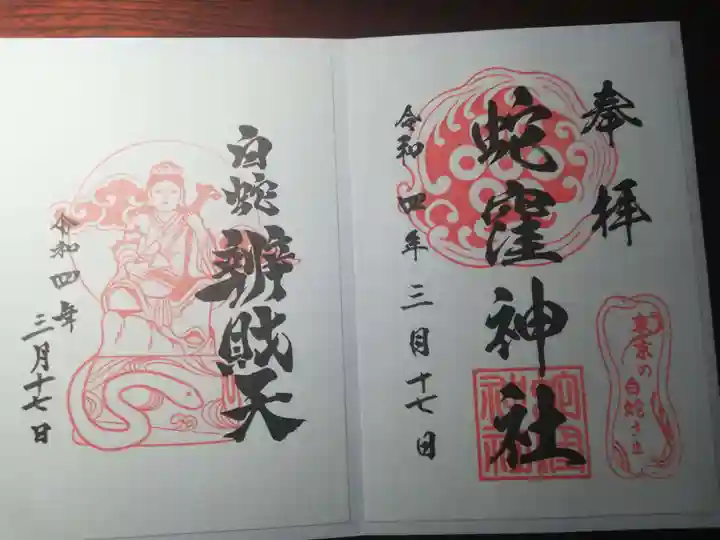 奉拝
蛇窪神社
令和四年三月十七日
東京の白蛇さま
蛇窪神社
白蛇辨財天
令和四年
三月十七日